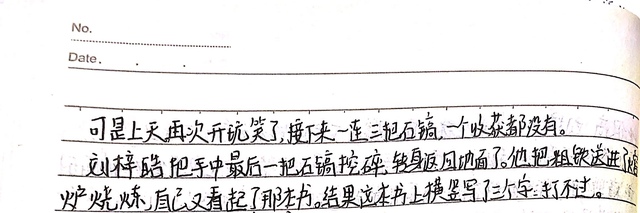 No.
Date.
可是上天再次开玩笑了,接下来一连三把石镐,一个收获都没有。
刘梓皓把手中最后一把石镐挖碎,转身返回地面了。他把粗铁送进了
炉烧炼,自己又看起了那本书。结果这本书上横竖写了三个字:打不过。